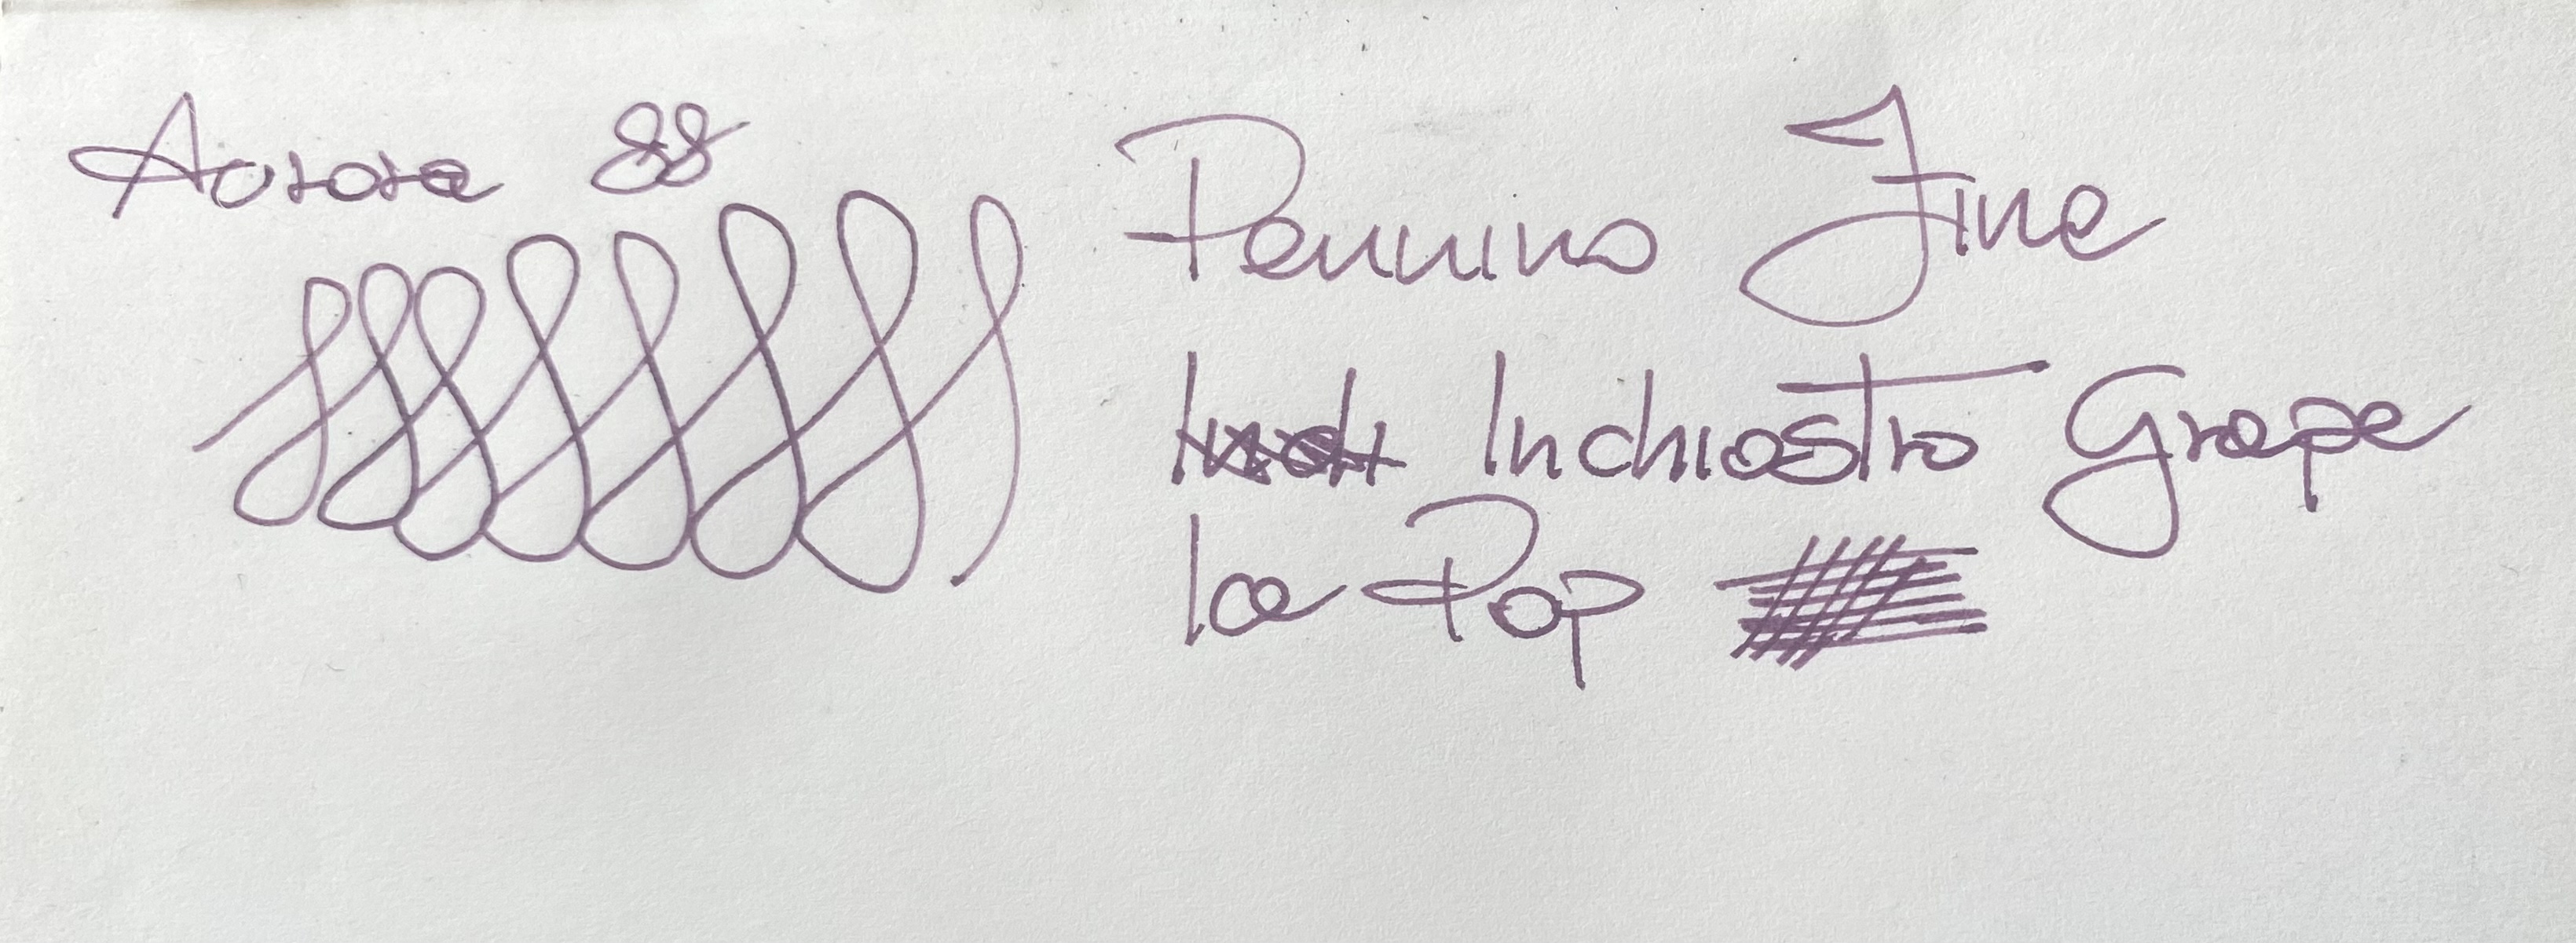 Aurora 88
Pennino Fine
Inchiostro Grape
Ice Pop